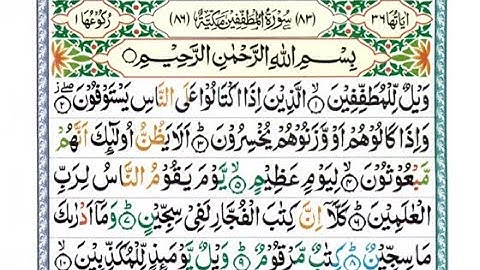 اٰيَاتُهَا ٣٦ (٨٣) سُوْرَةُ الْمُطَفِّفِيْنَ مَكِّيَّةٌ (٨٦) رُكُوْعُهَا ١
بِسْمِ اللهِ الرَّحْمٰنِ الرَّحِيْمِ ○
وَيْلٌ لِّلْمُطَفِّفِيْنَ ۙ‏ ١ الَّذِيْنَ اِذَا اكْتَالُوْا عَلَى النَّاسِ يَسْتَوْفُوْنَ ۖ ٢
وَاِذَا كَالُوْهُمْ اَوْ وَّزَنُوْهُمْ يُخْسِرُوْنَ ٣ اَلَا يَظُنُّ اُولٰٓئِكَ اَنَّهُمْ
مَّبْعُوْثُوْنَ ۙ ٤ لِيَوْمٍ عَظِيْمٍ ۙ ٥ يَّوْمَ يَقُوْمُ النَّاسُ لِرَبِّ
الْعٰلَمِيْنَ ٦ كَلَّاۤ اِنَّ كِتٰبَ الْفُجَّارِ لَفِيْ سِجِّيْنٍ ٧ وَمَاۤ اَدْرٰىكَ
مَا سِجِّيْنٌ ٨ كِتٰبٌ مَّرْقُوْمٌ ٩ وَيْلٌ يَّوْمَئِذٍ لِّلْمُكَذِّبِيْنَ ۙ ١٠